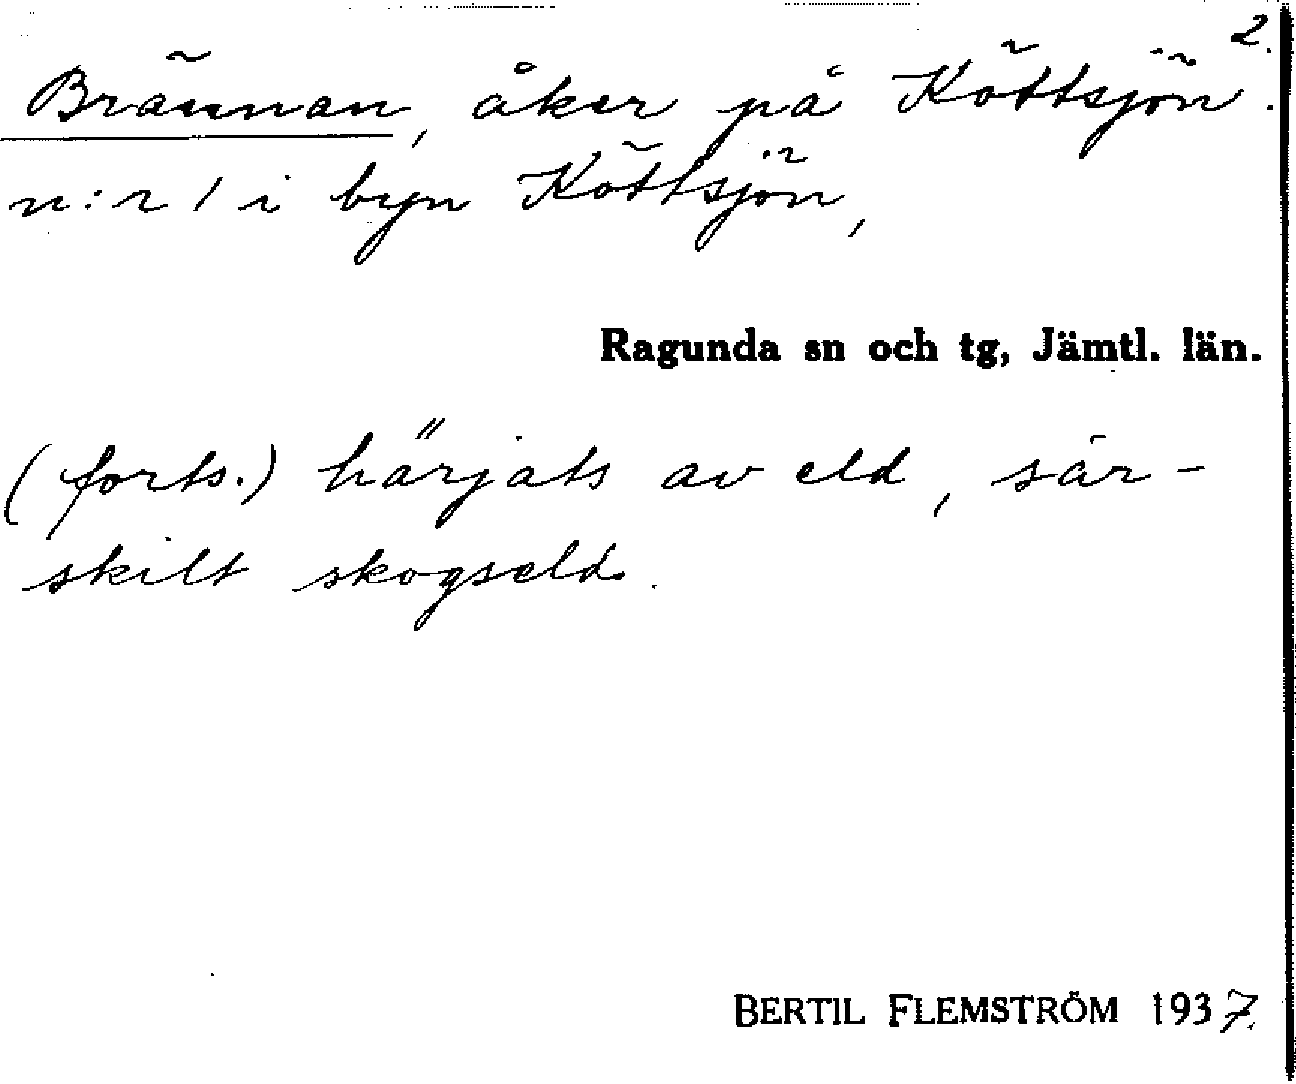 2.
Brännan, åker på Köttsjön.
n:r 1 i byn Köttsjön,
Ragunda sn och tg, Jämtl. län.
(forts.) härjats av eld, sär-
skilt skogseld.
BERTIL FLEMSTRÖM 1937.